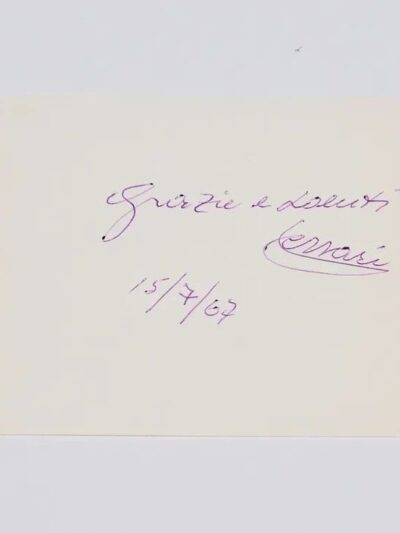 Grazie e saluti
Ferrari
15/7/67